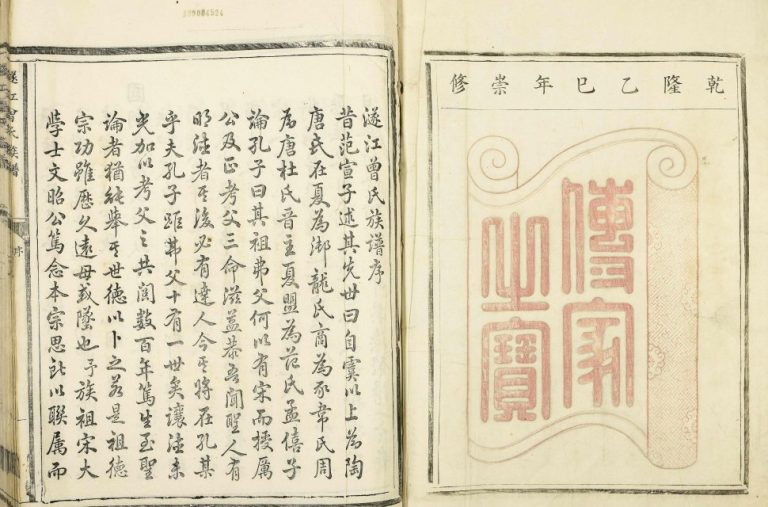 乾隆乙巳年崇修
傳家
之寶
遂江曾氏族譜序
昔范宣子述其先世曰自虞以上為陶
唐氏在夏為御龍氏商為豕韋氏周
為唐杜氏晉主夏盟為范氏孟僖子
論孔子曰其祖弗父何以有宋而授厲
公及正考父三命滋益恭吾聞聖人有
明德者其後必有達人今其將在孔某
乎夫孔子距弗父十有一世矣讓德未
光加以考父之共閱數百年篤生至聖
論者猶能舉其世德以卜之若是祖德
宗功雖歷久遠毋或墜也予族祖宋大
學士文昭公篤念本宗思所以聯属而
江曾氏族譜
序